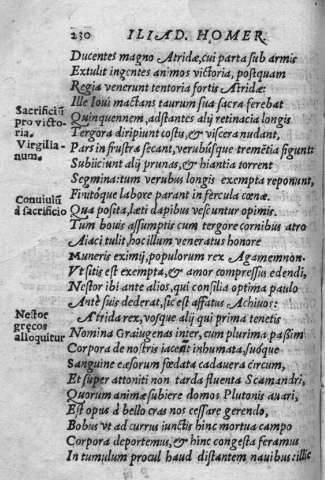 230 ILIAD. HOMER.
Ducentes magno Atridæ, cui parta sub armis
Extulit ingentes animos victoria, postquam
Regia venerunt tentoria fortis Atridæ:
Ille Ioui mactans taurum sua sacra ferebat
Sacrificiũ
pro victo-
ria.
Virgilia-
num.
Quinquennem, adstantes alij retinacia longis
Tergora diripiunt costis, & viscera nudant,
Pars in frustra secant, verubúsque tremẽtia figunt:
Subijciunt alij prunas, & hiantia torrent
Segmina: tum verubus longis exempta reponunt,
Conuiuiũ
à sacrificio
Finitóque labore parant in fercula cœnæ.
Qua posita, læti dapibus vescuntur opimis.
Tum bouis assumptis cum tergore cornibus atro
Aiaci tulit, hoc illum veneratus honore
Muneris eximij, populorum rex Agamemnon.
Vt sitis est exempta, & amor compressus edendi,
Nestor ibi ante alios, qui consilia optima paulo
Antè suis dederat, sic est affatus Achiuos:
Nestor
græcos
alloquitur
Atrida rex, vosque alij qui prima tenetis
Nomina Graiugenas inter, cum plurima passim
Corpora de nostris iaceãt inhumata, suóque
Sanguine cæsorum fœdata cadauera circum,
Et super attoniti non tarda fluenta Scamandri,
Quorum animæ subiere domos Plutonis auari,
Est opus à bello cras nos cessare gerendo,
Bobus vt ad currus iunctis hinc mortua campo
Corpora deportemus, & hinc congesta feramus
In tumulum procul haud distantem nauibus: illic